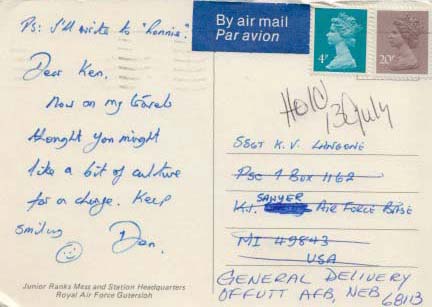 Ps: I'll write to "Lonnie".
Dear Ken,
Now on my travels
thought you might
like a bit of culture
for a change. Keep
smiling
Dan.
Junior Ranks Mess and Station Headquarters
Royal Air Force Gutersloh
By air mail
Par avion
4P
20P
Hold
13 July
SSGT K.V. LANGONE
PSC 1 BOX 1162
K.I. SAWYER AIR FORCE BASE
MI 49843
USA
GENERAL DELIVERY
OFFUTT AFB, NEB 68113